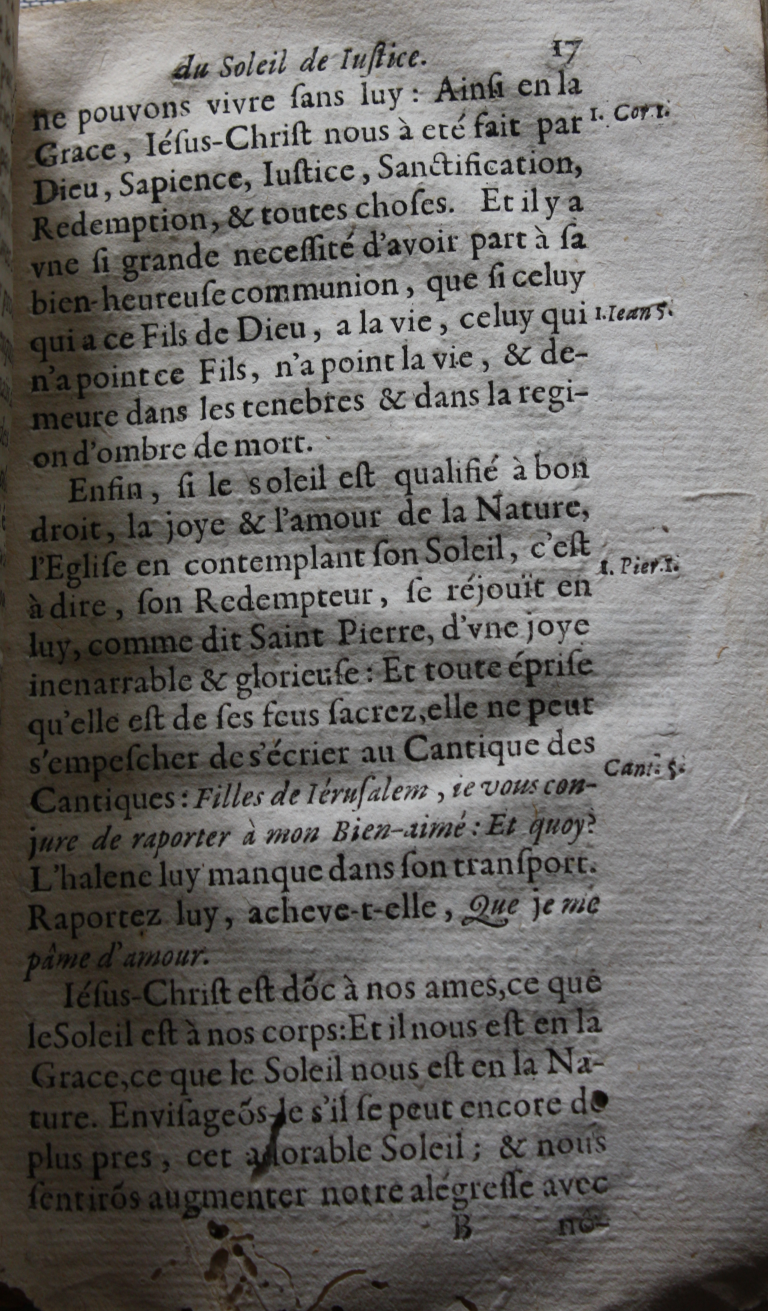 du Soleil de Iuſtice. 17
ne pouvons vivre ſans luy : Ainſi en la
Grace, Iéſus-Chriſt nous à eté fait par 1. Cor. 1.
Dieu, Sapience, Iuſtice, Sanctification,
Redemption, & toutes choſes. Et il y a
vne ſi grande neceſſité d'avoir part à ſa
bien-heureuſe communion, que ſi celuy
qui a ce Fils de Dieu, a la vie, celuy qui 1. Iean 5.
n'a point ce Fils, n'a point la vie, & de-
meure dans les tenebres & dans la regi-
on d'ombre de mort.
Enfin, ſi le soleil eſt qualifié à bon
droit, la joye & l'amour de la Nature,
l'Egliſe en contemplant ſon Soleil, c'eſt
à dire, ſon Redempteur, ſe réjouït en 1. Pier. 1.
luy, comme dit Saint Pierre, d'vne joye
inenarrable & glorieuſe : Et toute épriſe
qu'elle eſt de ſes feus ſacrez, elle ne peut
s'empeſcher de s'écrier au Cantique des
Cantiques : Filles de Iéruſalem, ie vous con- Cant. 5.
jure de raporter à mon Bien-aimé : Et quoy?
L'halene luy manque dans ſon tranſport.
Raportez luy, acheve-t-elle, Que je me
pâme d'amour.
Iéſus-Chriſt eſt dõc à nos ames, ce que
le Soleil eſt à nos corps: Et il nous eſt en la
Grace, ce que le Soleil nous eſt en la Na-
ture. Enviſageõs-le s'il ſe peut encore de
plus pres, cet adorable Soleil ; & nous
ſentirõs augmenter notre alégreſſe avec
B no-